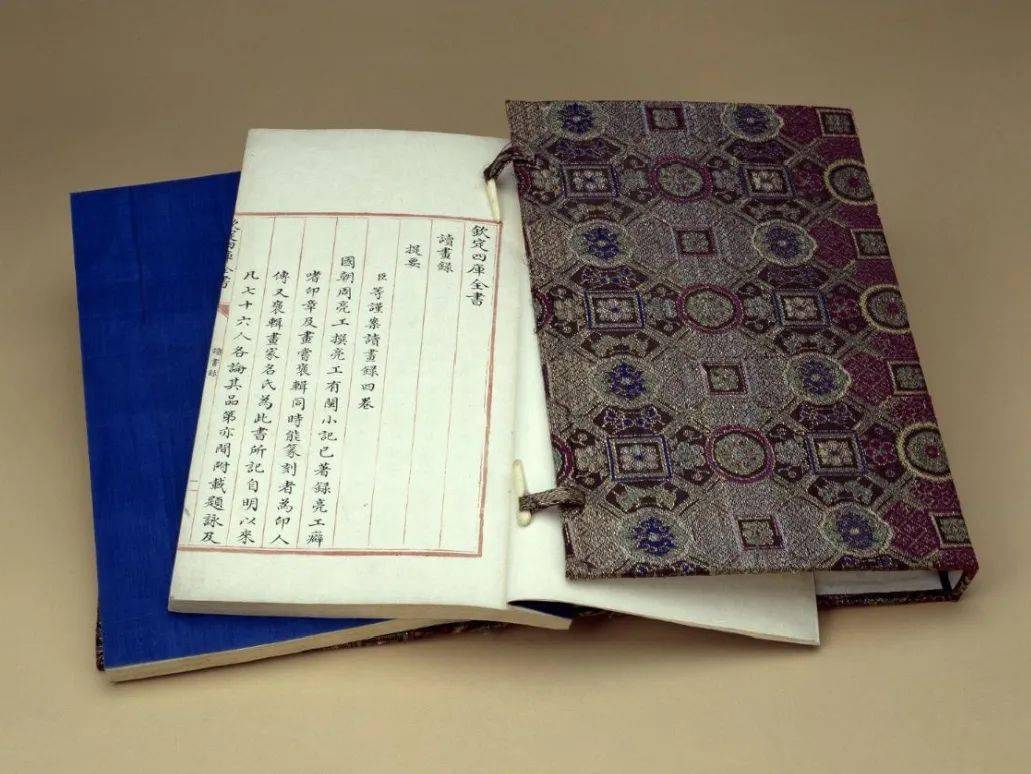 欽定四庫全書
讀畫録
提要
臣等謹案讀畫録四卷
國朝周亮工撰亮工有閩小記已著録亮工癖
嗜印章及畫嘗裒輯同時能篆刻者為印人
傳又裒輯畫家名氏為此書所記自明以來
凡七十六人各論其品第亦間附載題詠及
四庫全書
讀畫録